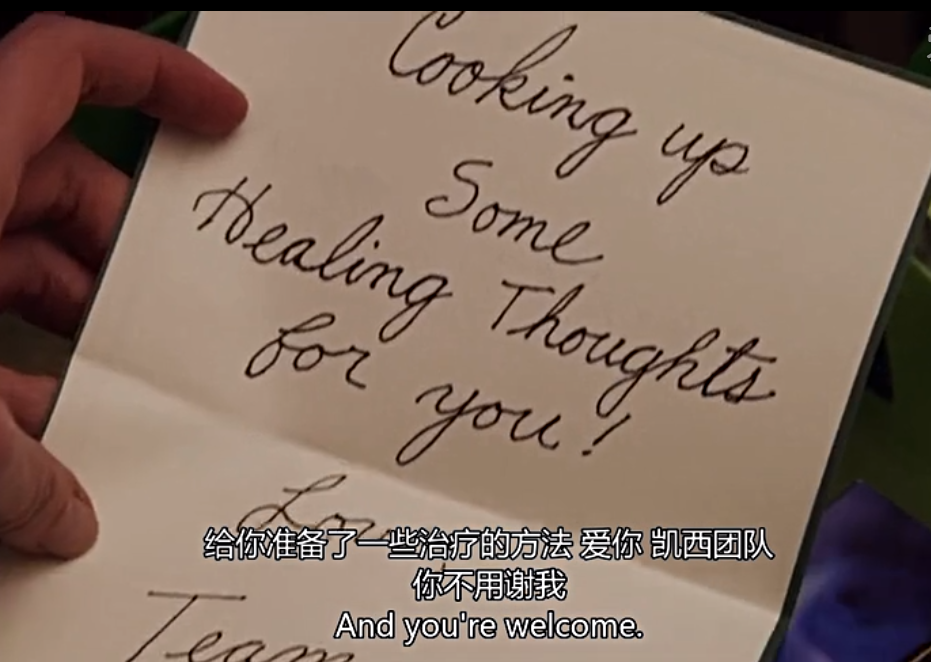 Cooking up
Some
Healing Thoughts
for you!
Team
给你准备了一些治疗的方法 爱你 凯西团队
你不用谢我
And you're welcome.